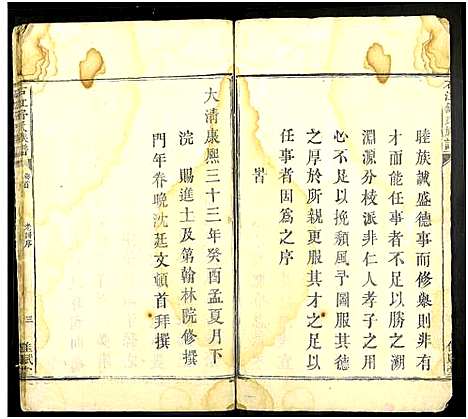 睦族誠盛德事而修舉則非有
才而能任事者不足以勝之溯
淵源分枝派非仁人孝子之用
心不足以挽頹風乎圖服其德
之厚於所親更服其才之足以
任事者因為之序
旹
大清康熙三十三年癸酉孟夏月下
浣 賜進士及第翰林院修撰
門年眷晩沈廷文頓首拜撰
三